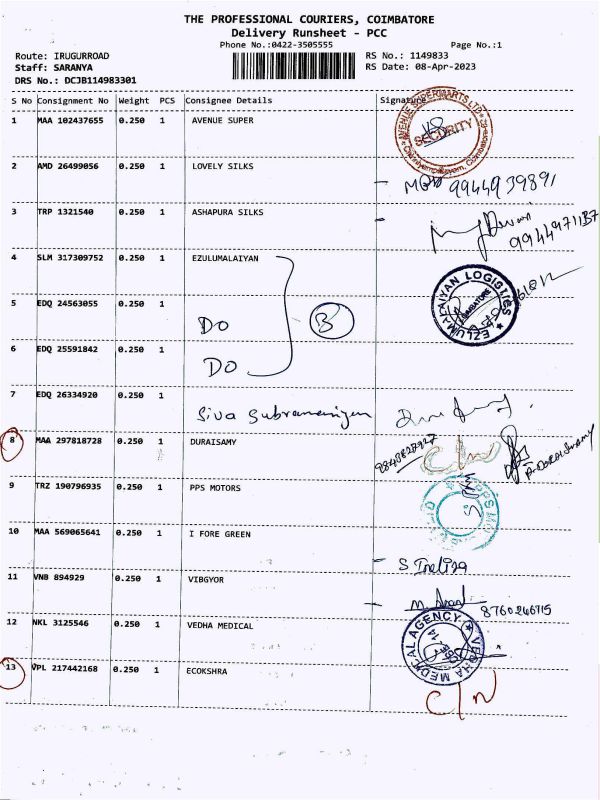 THE PROFESSIONAL COURIERS, COIMBATORE
Delivery Runsheet - PCC
Phone No.:0422-3505555 Page No.:1
Route: IRUGURROAD RS No.: 1149833
Staff: SARANYA RS Date: 08-Apr-2023
DRS No.: DCJB114983301
S No Consignment No Weight PCS Consignee Details Signature
1 MAA 102437655 0.250 1 AVENUE SUPER
AVENUE SUPERMARTS LTD
SECURITY
2 AMD 26499056 0.250 1 LOVELY SILKS
9944939891
3 TRP 1321540 0.250 1 ASHAPURA SILKS
4 SLM 317309752 0.250 1 EZULUMALAIYAN
EZLUMALAIYAN LOGISTICS
COIMBATORE
5 EDQ 24563055 0.250 1 DO B
6 EDQ 25591842 0.250 1 DO
7 EDQ 26334920 0.250 1 Siva Subramaniyan
8 MAA 297818728 0.250 1 DURAISAMY C/N
9 TRZ 190796935 0.250 1 PPS MOTORS
10 MAA 569065641 0.250 1 I FORE GREEN
11 VNB 894929 0.250 1 VIBGYOR
12 NKL 3125546 0.250 1 VEDHA MEDICAL
VEDHA MEDICAL AGENCY
13 VPL 217442168 0.250 1 ECOKSHRA C/N